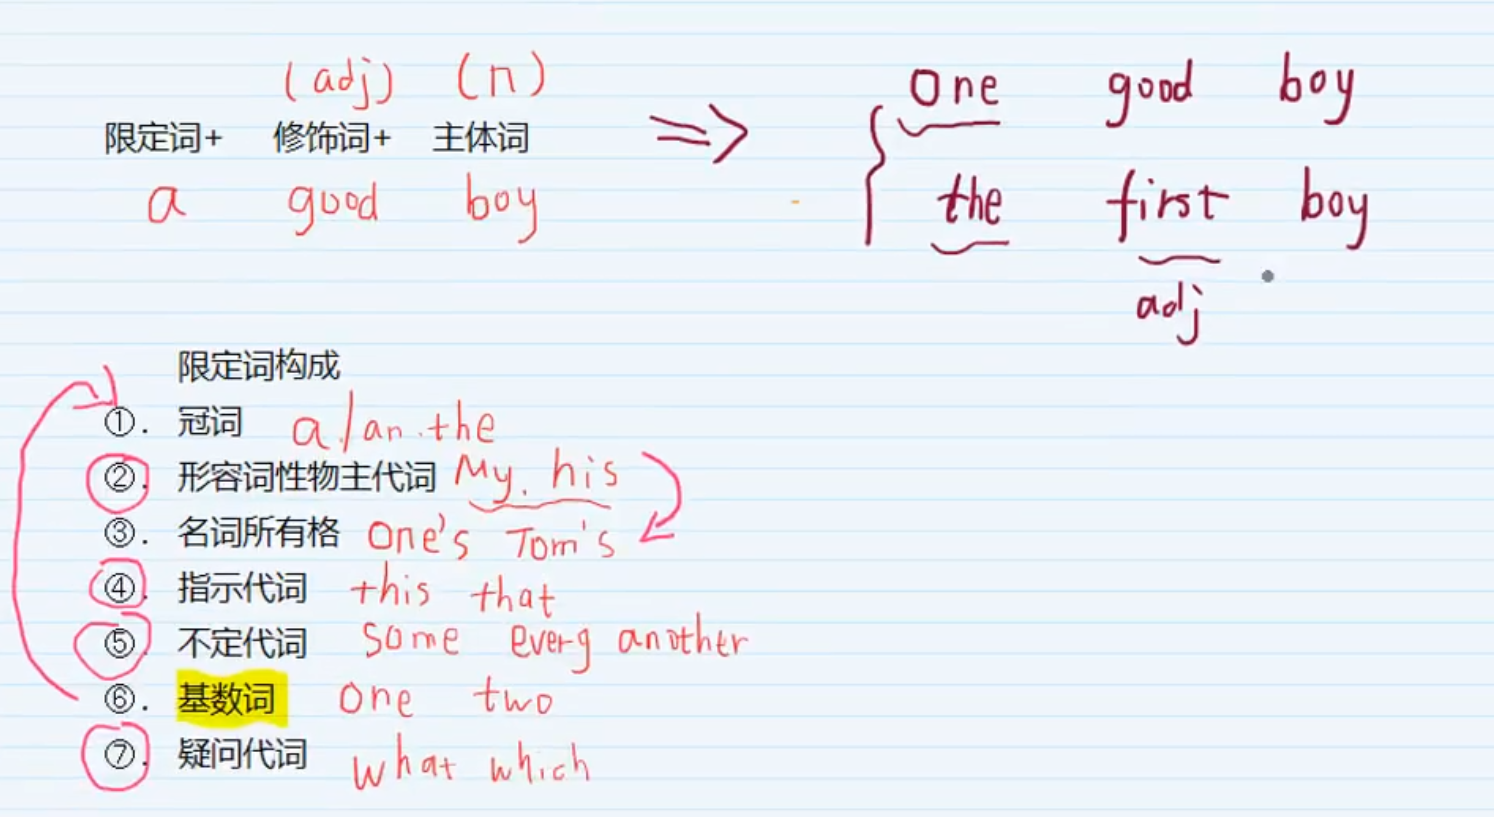 (adj) (n)
限定词+ 修饰词+ 主体词
a good boy
⇒
one good boy
the first boy
adj
限定词构成
①. 冠词 a/an.the
②. 形容词性物主代词 My. his
③. 名词所有格 One's Tom's
④. 指示代词 this that
⑤. 不定代词 some every another
⑥. 基数词 one two
⑦. 疑问代词 what which